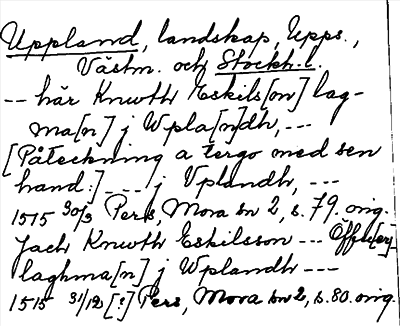 Uppland, landskap, Upps.,
Västm. och Stockh. l.
-- här Knwth Eskils[on] lag-
ma[n] j Wpla[n]dh, ---
[Påteckning a tergo med sen
hand:] --- j Vplandh, ---
1515 30/3 Pers, Mora sn 2, s. 79. orig.
Jach Knwth Eskilsson --- Öffue[er]
laghma[n] j Wplandh ---
1515 31/12 [?] Pers, Mora sn 2, s. 80. orig.